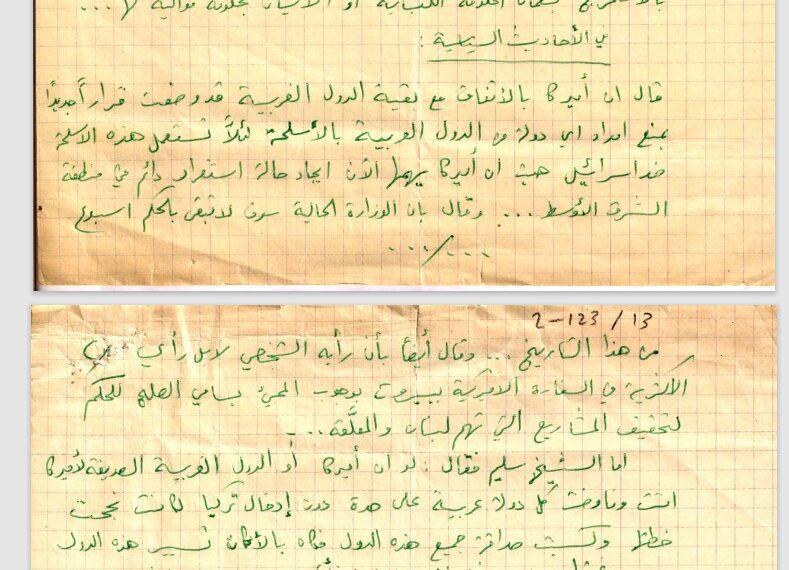 الحكومة اللبنانية أو الاتيان بحكومة موالية لها ...
في الأحاديث السياسية :
قال ان أميركا بالاتفاق مع بقية الدول الغربية قد وضعت قراراً جديداً
بمنع امداد اي دولة من الدول العربية بالأسلحة لئلاَّ تستعمل هذه الاسلحة
ضد اسرائيل حيث ان أميركا يهمها الآن ايجاد حالة استقرار دائم في منطقة
الشرق الأوسط ... وقال بان الوزارة الحالية سوف لا تبقى بالحكم اسبوع
.../...
2-123/13
من هذا التاريخ ... وقال أيضاً بأن رأيه الشخصي لا بل رأي
الاكثرية في السفارة الاميركية ببيروت بوجوب المجيء بسامي الصلح للحكم
لتحقيق المشاريع التي تهم لبنان والمعلَّقة ...
اما الشيخ سليم فقال : لو ان أميركا أو الدول الغربية الصديقة لأميركا
اتت وفاوضت كل دولة عربية على حدة دون إدخال تركيا لكانت نجحت
خطتها وكسبت صداقة جميع هذه الدول فكان بالأمكان تسيير هذه الدول